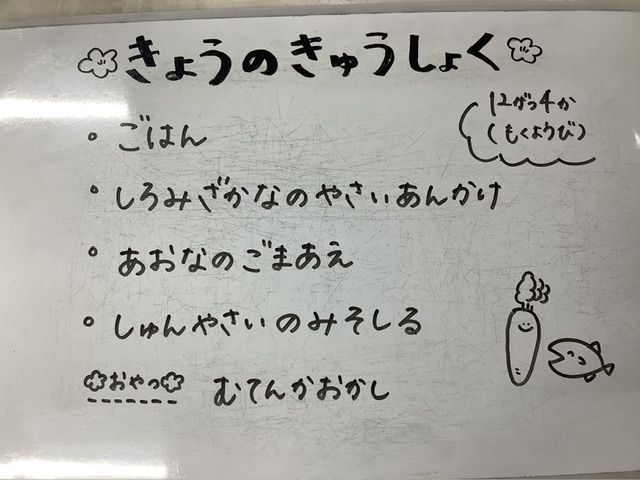 きょうのきゅうしょく
12がつ4か
(もくようび)
・ごはん
・しろみざかなのやさいあんかけ
・あおなのごまあえ
・しゅんやさいのみそしる
おやつ むてんかおかし